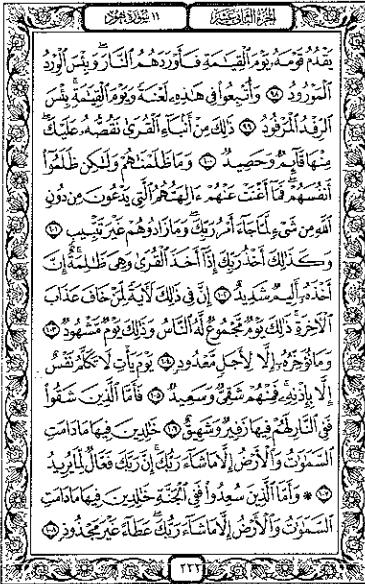 الجزء الثاني عشر ١١ سورة هود
يَقْدُمُ قَوْمَهُۥ يَوْمَ ٱلْقِيَٰمَةِ فَأَوْرَدَهُمُ ٱلنَّارَ ۖ وَبِئْسَ ٱلْوِرْدُ
ٱلْمَوْرُودُ ٩٨ وَأُتْبِعُوا۟ فِى هَٰذِهِۦ لَعْنَةً وَيَوْمَ ٱلْقِيَٰمَةِ ۚ بِئْسَ
ٱلرِّفْدُ ٱلْمَرْفُودُ ٩٩ ذَٰلِكَ مِنْ أَنۢبَآءِ ٱلْقُرَىٰ نَقُصُّهُۥ عَلَيْكَ ۖ
مِنْهَا قَآئِمٌ وَحَصِيدٌ ١٠٠ وَمَا ظَلَمْنَٰهُمْ وَلَٰكِن ظَلَمُوٓا۟
أَنفُسَهُمْ ۖ فَمَآ أَغْنَتْ عَنْهُمْ ءَالِهَتُهُمُ ٱلَّتِى يَدْعُونَ مِن دُونِ
ٱللَّهِ مِن شَىْءٍ لَّمَّا جَآءَ أَمْرُ رَبِّكَ ۖ وَمَا زَادُوهُمْ غَيْرَ تَتْبِيبٍ ١٠١
وَكَذَٰلِكَ أَخْذُ رَبِّكَ إِذَآ أَخَذَ ٱلْقُرَىٰ وَهِىَ ظَٰلِمَةٌ ۚ إِنَّ
أَخْذَهُۥٓ أَلِيمٌ شَدِيدٌ ١٠٢ إِنَّ فِى ذَٰلِكَ لَءَايَةً لِّمَنْ خَافَ عَذَابَ
ٱلْءَاخِرَةِ ۚ ذَٰلِكَ يَوْمٌ مَّجْمُوعٌ لَّهُ ٱلنَّاسُ وَذَٰلِكَ يَوْمٌ مَّشْهُودٌ ١٠٣
وَمَا نُؤَخِّرُهُۥٓ إِلَّا لِأَجَلٍ مَّعْدُودٍ ١٠٤ يَوْمَ يَأْتِ لَا تَكَلَّمُ نَفْسٌ
إِلَّا بِإِذْنِهِۦ ۚ فَمِنْهُمْ شَقِىٌّ وَسَعِيدٌ ١٠٥ فَأَمَّا ٱلَّذِينَ شَقُوا۟
فَفِى ٱلنَّارِ لَهُمْ فِيهَا زَفِيرٌ وَشَهِيقٌ ١٠٦ خَٰلِدِينَ فِيهَا مَا دَامَتِ
ٱلسَّمَٰوَٰتُ وَٱلْأَرْضُ إِلَّا مَا شَآءَ رَبُّكَ ۚ إِنَّ رَبَّكَ فَعَّالٌ لِّمَا يُرِيدُ
١٠٧ ۞ وَأَمَّا ٱلَّذِينَ سُعِدُوا۟ فَفِى ٱلْجَنَّةِ خَٰلِدِينَ فِيهَا مَا دَامَتِ
ٱلسَّمَٰوَٰتُ وَٱلْأَرْضُ إِلَّا مَا شَآءَ رَبُّكَ ۖ عَطَآءً غَيْرَ مَجْذُوذٍ ١٠٨
٢٣٢